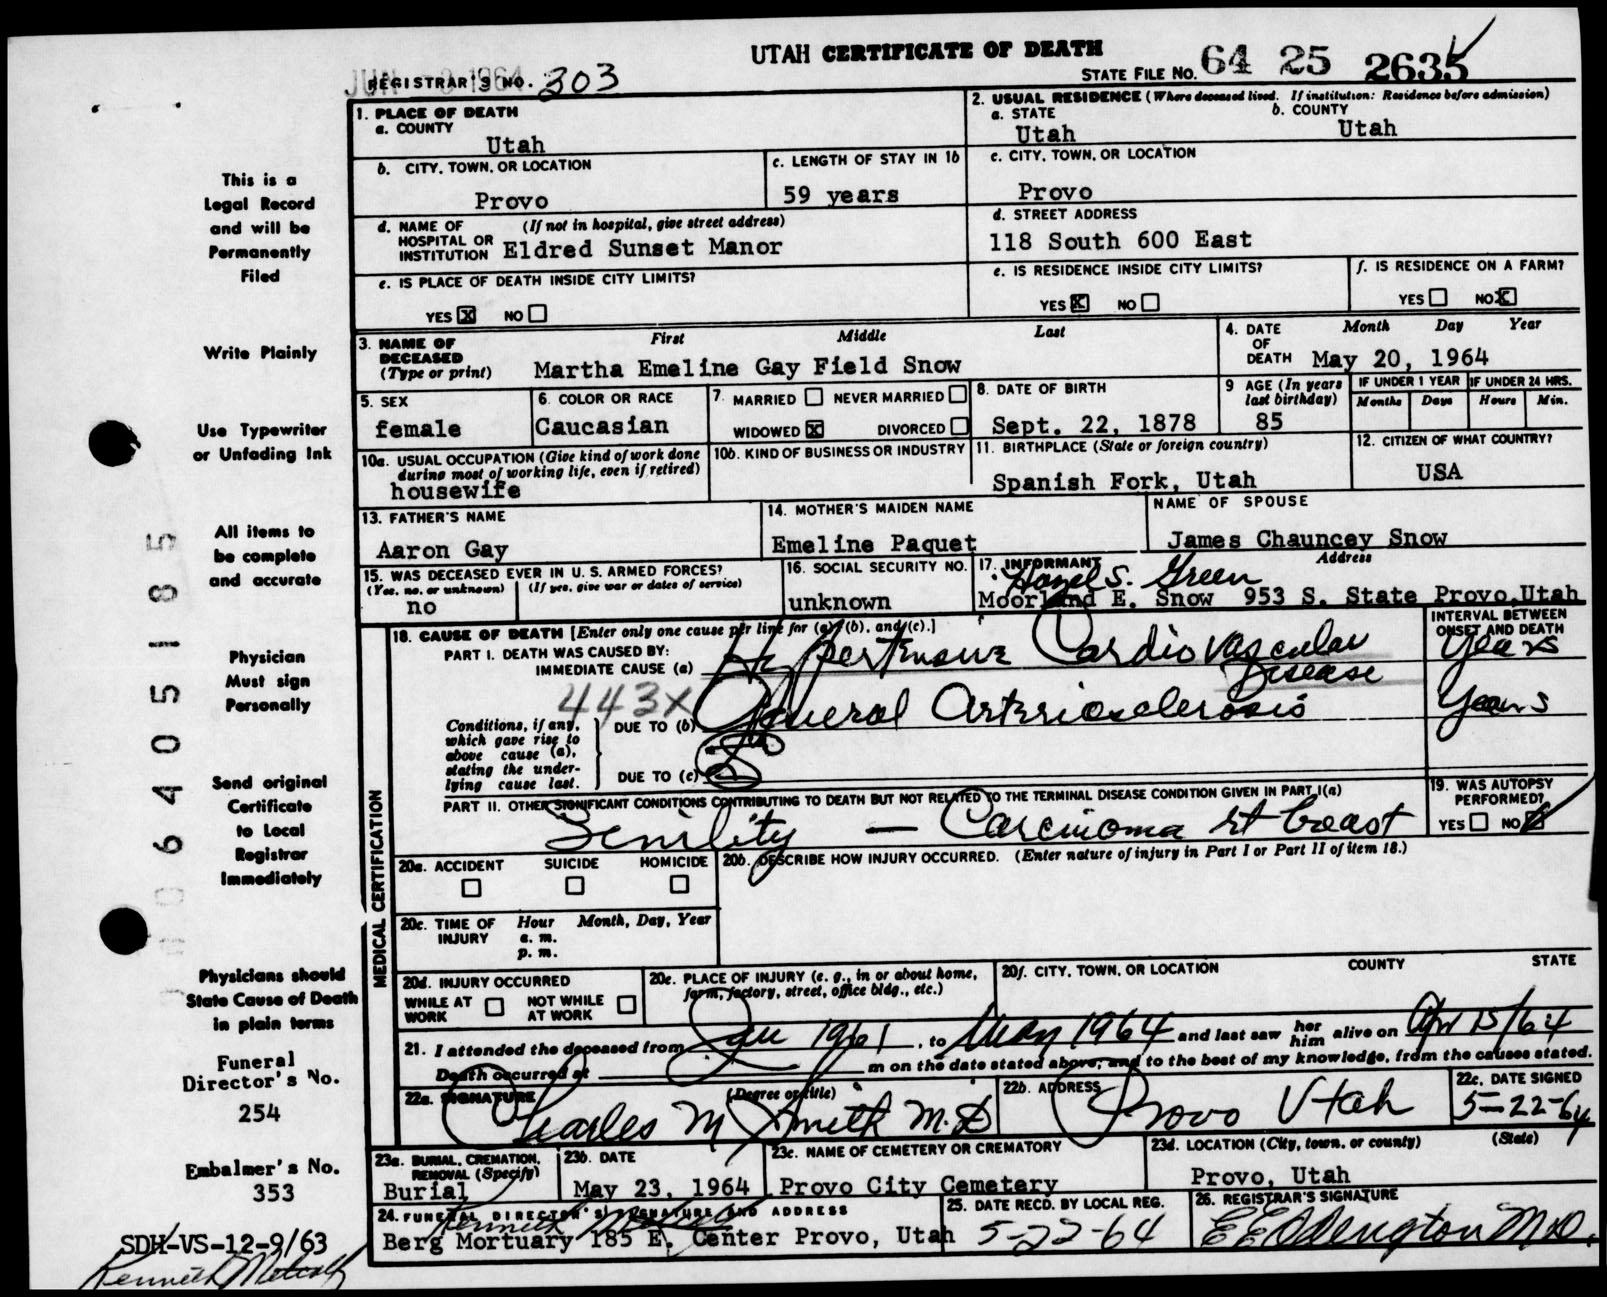 UTAH CERTIFICATE OF DEATH
JUN 1964
REGISTRAR'S NO. 303
STATE FILE NO. 64 25 2635
1. PLACE OF DEATH
a. COUNTY
Utah
2. USUAL RESIDENCE (Where deceased lived. If institution: Residence before admission)
a. STATE
Utah
b. COUNTY
Utah
b. CITY, TOWN, OR LOCATION
Provo
c. LENGTH OF STAY IN 1b
59 years
c. CITY, TOWN, OR LOCATION
Provo
d. NAME OF HOSPITAL OR INSTITUTION (If not in hospital, give street address)
Eldred Sunset Manor
d. STREET ADDRESS
118 South 600 East
e. IS PLACE OF DEATH INSIDE CITY LIMITS?
YES X NO
e. IS RESIDENCE INSIDE CITY LIMITS?
YES X NO
f. IS RESIDENCE ON A FARM?
YES NO X
3. NAME OF DECEASED (Type or print)
First Middle Last
Martha Emeline Gay Field Snow
4. DATE OF DEATH
Month Day Year
May 20, 1964
5. SEX
female
6. COLOR OR RACE
Caucasian
7. MARRIED NEVER MARRIED
WIDOWED X DIVORCED
8. DATE OF BIRTH
Sept. 22, 1878
9 AGE (In years last birthday)
85
IF UNDER 1 YEAR
Months Days
IF UNDER 24 HRS.
Hours Min.
10a. USUAL OCCUPATION (Give kind of work done during most of working life, even if retired)
housewife
10b. KIND OF BUSINESS OR INDUSTRY
11. BIRTHPLACE (State or foreign country)
Spanish Fork, Utah
12. CITIZEN OF WHAT COUNTRY?
USA
13. FATHER'S NAME
Aaron Gay
14. MOTHER'S MAIDEN NAME
Emeline Paquet
NAME OF SPOUSE
James Chauncey Snow
15. WAS DECEASED EVER IN U. S. ARMED FORCES?
(Yes, no, or unknown) (If yes, give war or dates of service)
no
16. SOCIAL SECURITY NO.
unknown
17. INFORMANT Address
Hazel S. Green
Moorland E. Snow 953 S. State Provo, Utah
18. CAUSE OF DEATH [Enter only one cause per line for (a), (b), and (c).]
INTERVAL BETWEEN ONSET AND DEATH
PART I. DEATH WAS CAUSED BY:
IMMEDIATE CAUSE (a) Hypertensive Cardiovascular Disease
Years
443X
Conditions, if any, which gave rise to above cause (a), stating the underlying cause last.
DUE TO (b) General Arteriosclerosis
Years
DUE TO (c)
PART II. OTHER SIGNIFICANT CONDITIONS CONTRIBUTING TO DEATH BUT NOT RELATED TO THE TERMINAL DISEASE CONDITION GIVEN IN PART I(a)
Senility — Carcinoma rt breast
19. WAS AUTOPSY PERFORMED?
YES NO
20a. ACCIDENT SUICIDE HOMICIDE
20b. DESCRIBE HOW INJURY OCCURRED. (Enter nature of injury in Part I or Part II of item 18.)
20c. TIME OF INJURY
Hour Month, Day, Year
a. m.
p. m.
20d. INJURY OCCURRED
WHILE AT WORK NOT WHILE AT WORK
20e. PLACE OF INJURY (e. g., in or about home, farm, factory, street, office bldg., etc.)
20f. CITY, TOWN, OR LOCATION COUNTY STATE
21. I attended the deceased from Jan 1961, to May 1964 and last saw her him alive on Apr 15/64
Death occurred at m on the date stated above, and to the best of my knowledge, from the causes stated.
22a. SIGNATURE (Degree or title)
Charles M Smith M.D
22b. ADDRESS
Provo Utah
22c. DATE SIGNED
5-22-64
23a. BURIAL, CREMATION, REMOVAL (Specify)
Burial
23b. DATE
May 23, 1964
23c. NAME OF CEMETERY OR CREMATORY
Provo City Cemetery
23d. LOCATION (City, town, or county) (State)
Provo, Utah
24. FUNERAL DIRECTOR'S SIGNATURE AND ADDRESS
Kenneth Metcalf
Berg Mortuary 185 E. Center Provo, Utah
25. DATE RECD. BY LOCAL REG.
5-22-64
26. REGISTRAR'S SIGNATURE
MEDICAL CERTIFICATION
This is a
Legal Record
and will be
Permanently
Filed
Write Plainly
Use Typewriter
or Unfading Ink
All items to
be complete
and accurate
Physician
Must sign
Personally
Send original
Certificate
to Local
Registrar
Immediately
Physicians should
State Cause of Death
in plain terms
Funeral
Director's No.
254
Embalmer's No.
353
SDH-VS-12-9/63
Kenneth Metcalf
06405185